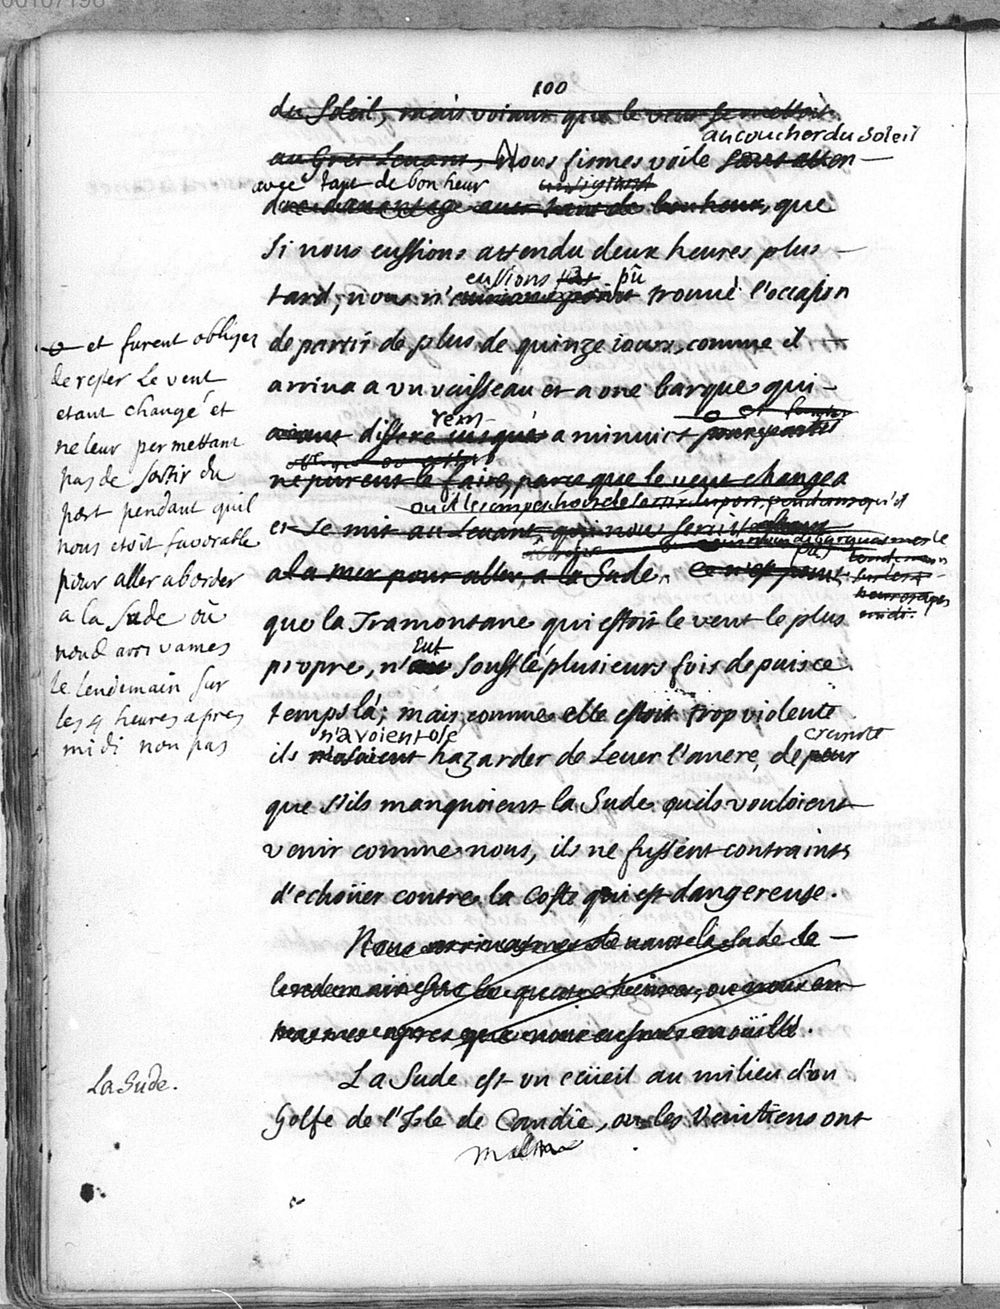 100
du Soleil, mais voiant que le vent se mettoit
au coucher du Soleil
au Grec Levant, Nous fismes voile sans atten
avec tant de bonheur
dre davantage avec tant de bonheur, que
si nous eussions attendu deux heures plus
eussions pû
tard, nous n'eussions point trouvé l'occasion
de partir de plus de quinze iours, comme il
arriva a un vaisseau et a une barque qui
vers
aiant differé iusques a minuict pour partir
ne purent le faire, parce que le vent changea
et se mit au Levant, qui nous servit
a la mer pour aller, a la Sude. Ce n'est point
que la Tramontane qui estoit le vent le plus
eut
propre, n'eut soufflé plusieurs fois depuis ce
temps là; mais comme elle estoit trop violente
n'avoient osé
crainte
ils n'osoient hazarder de Lever l'ancre, de peur
que s'ils manquoient la Sude quils vouloient
venir comme nous, ils ne fussent contraints
d'echoüer contre la Coste qui est dangereuse.
Nous arrivasmes de vant la Sude le
lendemain sur les quatre heures, ou nous en
trasmes apres que nous eusmes moüillé.
La Sude est un ecüeil au milieu d'un
Golfe de l'Isle de Candie, ou les Venitiens ont
et furent obliges
de rester Le vent
etant changé et
ne leur permettant
pas de sortir du
port pendant quil
nous etoit favorable
pour aller aborder
a la Sude où
nous arrivames
le lendemain sur
les 4 heures apres
midi non pas
La Sude.